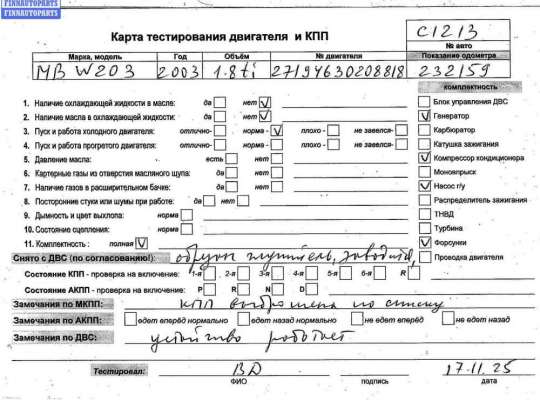 FINNAUTOPARTS
FINNAUTOPARTS
Карта тестирования двигателя и КПП
C1213
№ авто
Марка, модель Год Объём № двигателя Показание одометра
MB W203 2003 1.8ti 27194630208818 232159
комплектность
1. Наличие охлаждающей жидкости в масле: да нет
2. Наличие масла в охлаждающей жидкости: да нет
3. Пуск и работа холодного двигателя: отлично- норма- плохо- не завелся-
4. Пуск и работа прогретого двигателя: отлично- норма- плохо- не завелся-
5. Давление масла: есть нет
6. Картерные газы из отверстия масляного щупа: да нет
7. Наличие газов в расширительном бачке: да нет
8. Посторонние стуки или шумы при работе: да нет
9. Дымность и цвет выхлопа: норма
10. Состояние сцепления: норма
11. Комплектность: полная
Блок управления ДВС
Генератор
Карбюратор
Катушка зажигания
Компрессор кондиционера
Моновпрыск
Насос г/у
Распределитель зажигания
ТНВД
Турбина
Форсунки
Проводка двигателя
Снято с ДВС (по согласованию!):
Состояние КПП - проверка на включение: 1-я 2-я 3-я 4-я 5-я 6-я R
Состояние АКПП - проверка на включение: P R N D
Замечания по МКПП: КПП
Замечания по АКПП: едет вперёд нормально едет назад нормально не едет вперёд не едет назад
Замечания по ДВС: работает
Тестировал: ВД 17.11.25
ФИО подпись дата